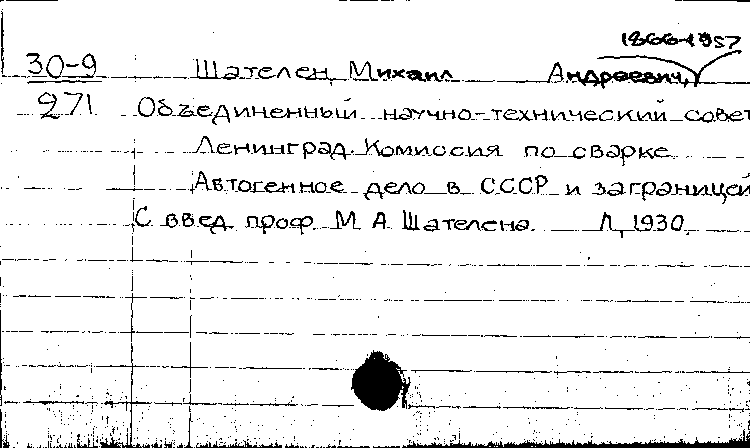 1866-1957
30-9 Шателен, Михаил Андреевич,
271 Объединенный научно-технический совет
Ленинград. Комиссия по сварке.
Автогенное дело в СССР и заграницей
С введ. проф. М. А. Шателена. Л., 1930.